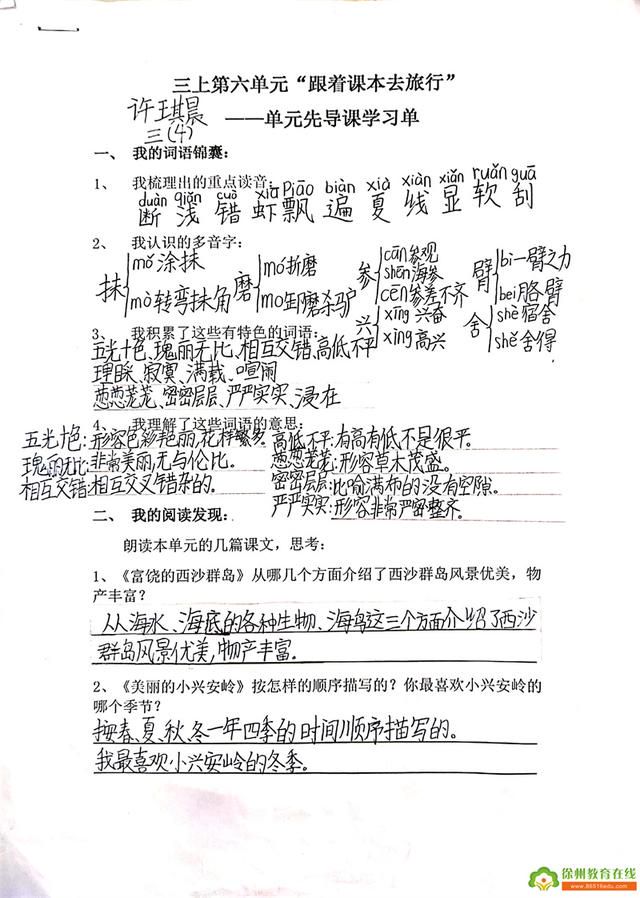 三上第六单元“跟着课本去旅行”
许琪晨
——单元先导课学习单
三(4)
一、 我的词语锦囊：
1、 我梳理出的重点读音：
duàn qiǎn cuò xiā Piāo biàn xià xiàn xiǎn ruǎn guā
断 浅 错 虾 飘 遍 夏 线 显 软 刮
2、 我认识的多音字：
抹 mǒ 涂抹 mò 转弯抹角
磨 mó折磨 mo卸磨杀驴
参 cān参观 shēn海参 cēn参差不齐
臂 bì一臂之力 bei胳臂
兴 xīng 兴奋 xìng高兴
舍 shè宿舍 shě舍得
3、 我积累了这些有特色的词语：
五光十色、瑰丽无比、相互交错、高低不平
理睬、寂寞、满载、喧闹
葱葱茏茏、密密层层、严严实实、浸在
4、 我理解了这些词语的意思：
五光十色:形容色彩艳丽,花样繁多 高低不平:有高有低,不是很平。
瑰丽无比:非常美丽,无与伦比。 葱葱茏茏:形容草木茂盛。
相互交错:相互交叉错杂的。 密密层层:比喻满布的没有空隙。
严严实实:形容非常严密整齐。
二、 我的阅读发现：
朗读本单元的几篇课文，思考：
1、《富饶的西沙群岛》从哪几个方面介绍了西沙群岛风景优美，物
产丰富？
从海水、海底的各种生物、海鸟这三个方面介绍了西沙
群岛风景优美,物产丰富.
2、《美丽的小兴安岭》按怎样的顺序描写的？你最喜欢小兴安岭的
哪个季节？
按春、夏、秋、冬一年四季的时间顺序描写的。
我最喜欢小兴安岭的冬季。
徐州教育在线
www.86516edu.com